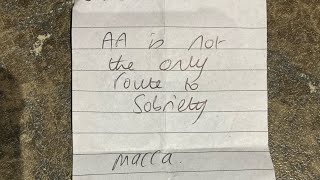 AA is not
the only
route to
Sobriety
Macca